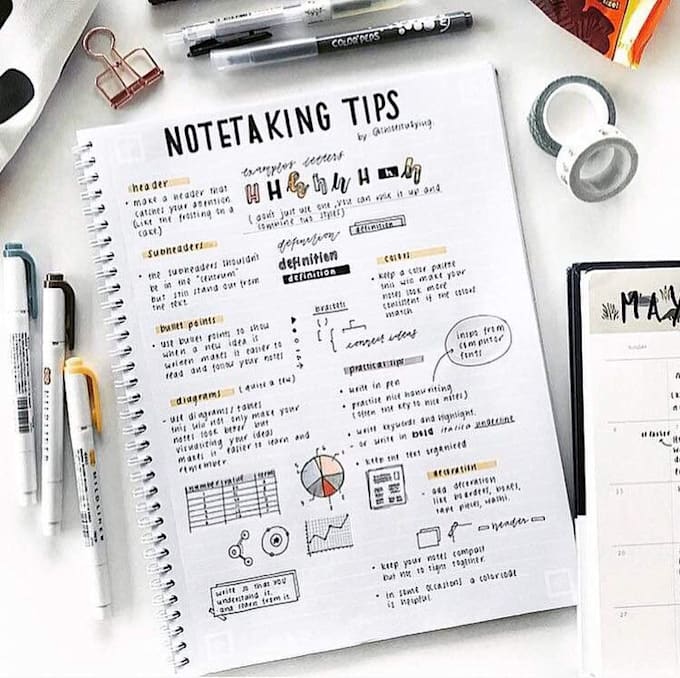 COLOR PEPS
NOTETAKING TIPS
by
header
• make a header that
catches your attention
(like the frosting on a
cake)
examples letters
H H H H H H H h
(don't just use one, you can mix it up and
combine two styles)
subheaders
• the subheaders shouldn't
be in the "centrum"
but still stand out from
the text.
definition
definition
definition
definition
colors
• keep a color palette
this will make your
notes look more
consistent if the colors
match
bullet points
• use bullet points to show
when a new idea is
written makes it easier to
read and follow your notes
brackets
connect ideas
inspo from
computer
fonts
practical tips
• write in pen
• practice nice handwriting
(often the key to nice notes)
• write keywords and highlight.
- or write in bold italics underline
• keep the text organized
diagrams (quite a few)
- use diagrams/tables
this will not only make your
notes look better but
visualizing your ideas
makes it easier to learn and
remember.
number value term
decoration
- add decoration
like boarders, boxes,
tape pieces, washi.
header
• keep your notes compact
but not to tight together.
• in some occasions a colorcode
is helpful.
write so that you
understand it.
and learn from it
MILDLINER
MAY
sunday
13
20
27